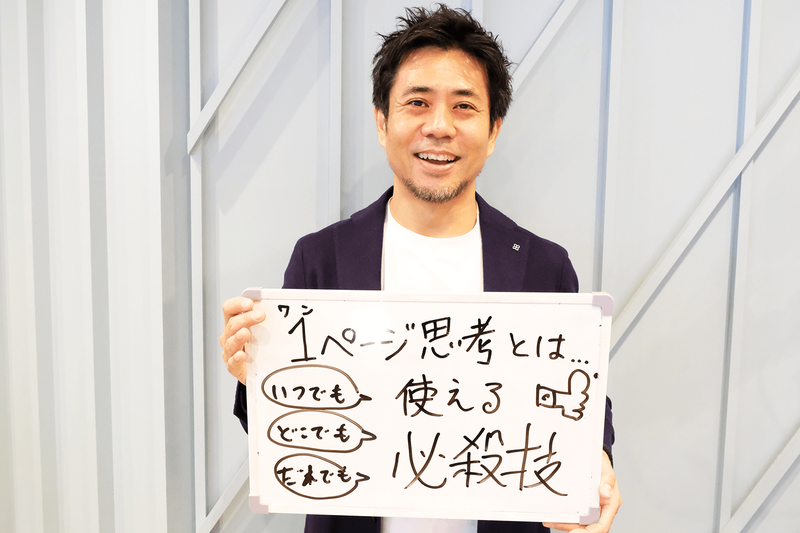 ワン
1ページ思考とは...
いつでも
どこでも
だれでも
使える
必殺技